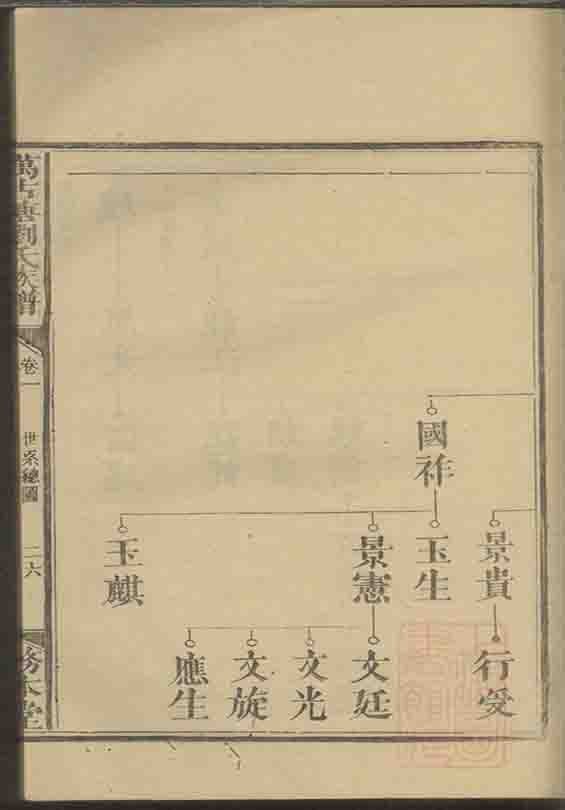 國祚
景貴
玉生
景憲
玉麒
行受
文廷
文光
文旋
應生
劉氏族譜
卷一
世系總圖
二六
務本堂